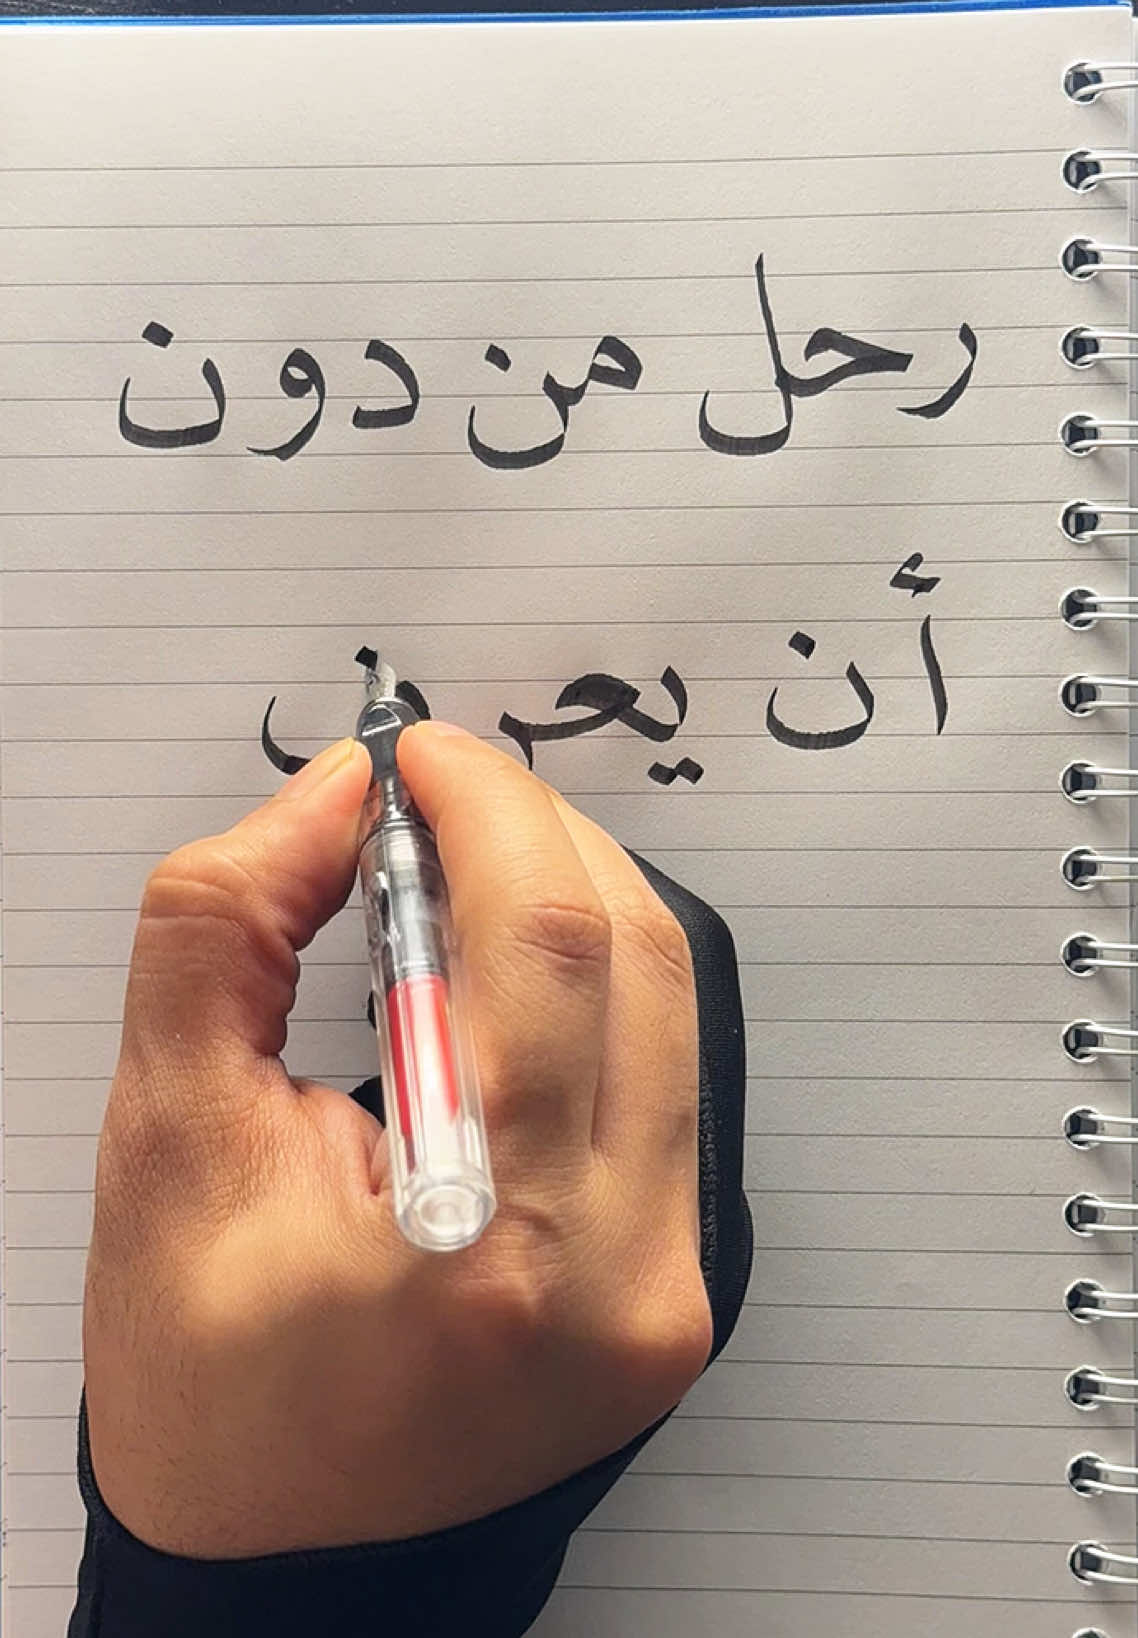 رحل من دون
أن يعرف